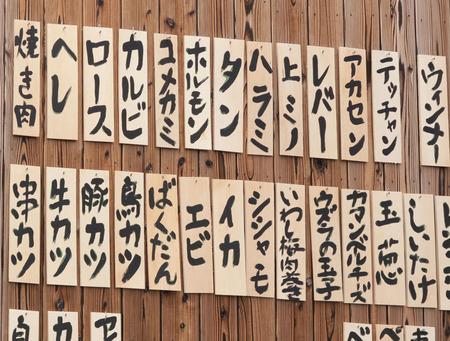 焼き肉
ヘレ
ロース
カルビ
コメカミ
ホルモン
タン
ハラミ
上ミノ
レバー
アカセン
テッチャン
ウィンナー
串カツ
牛カツ
豚カツ
鳥カツ
ばくだん
エビ
イカ
シシャモ
いわし梅肉巻
ウズラの玉子
カマンベールチーズ
玉葱
しいたけ